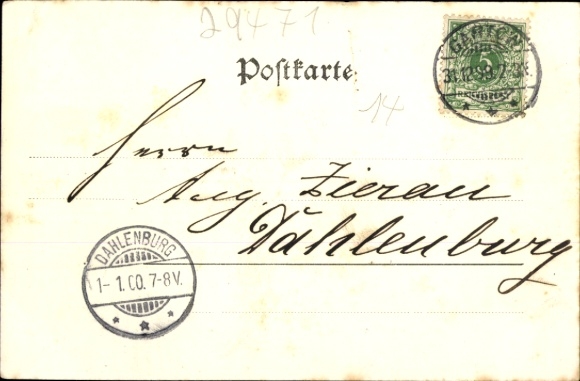 29471
Postkarte
14
5
31.12.99.7-8N.
Herrn
Aug. Zierau
Dahlenburg
DAHLENBURG
1-1.00.7-8V.